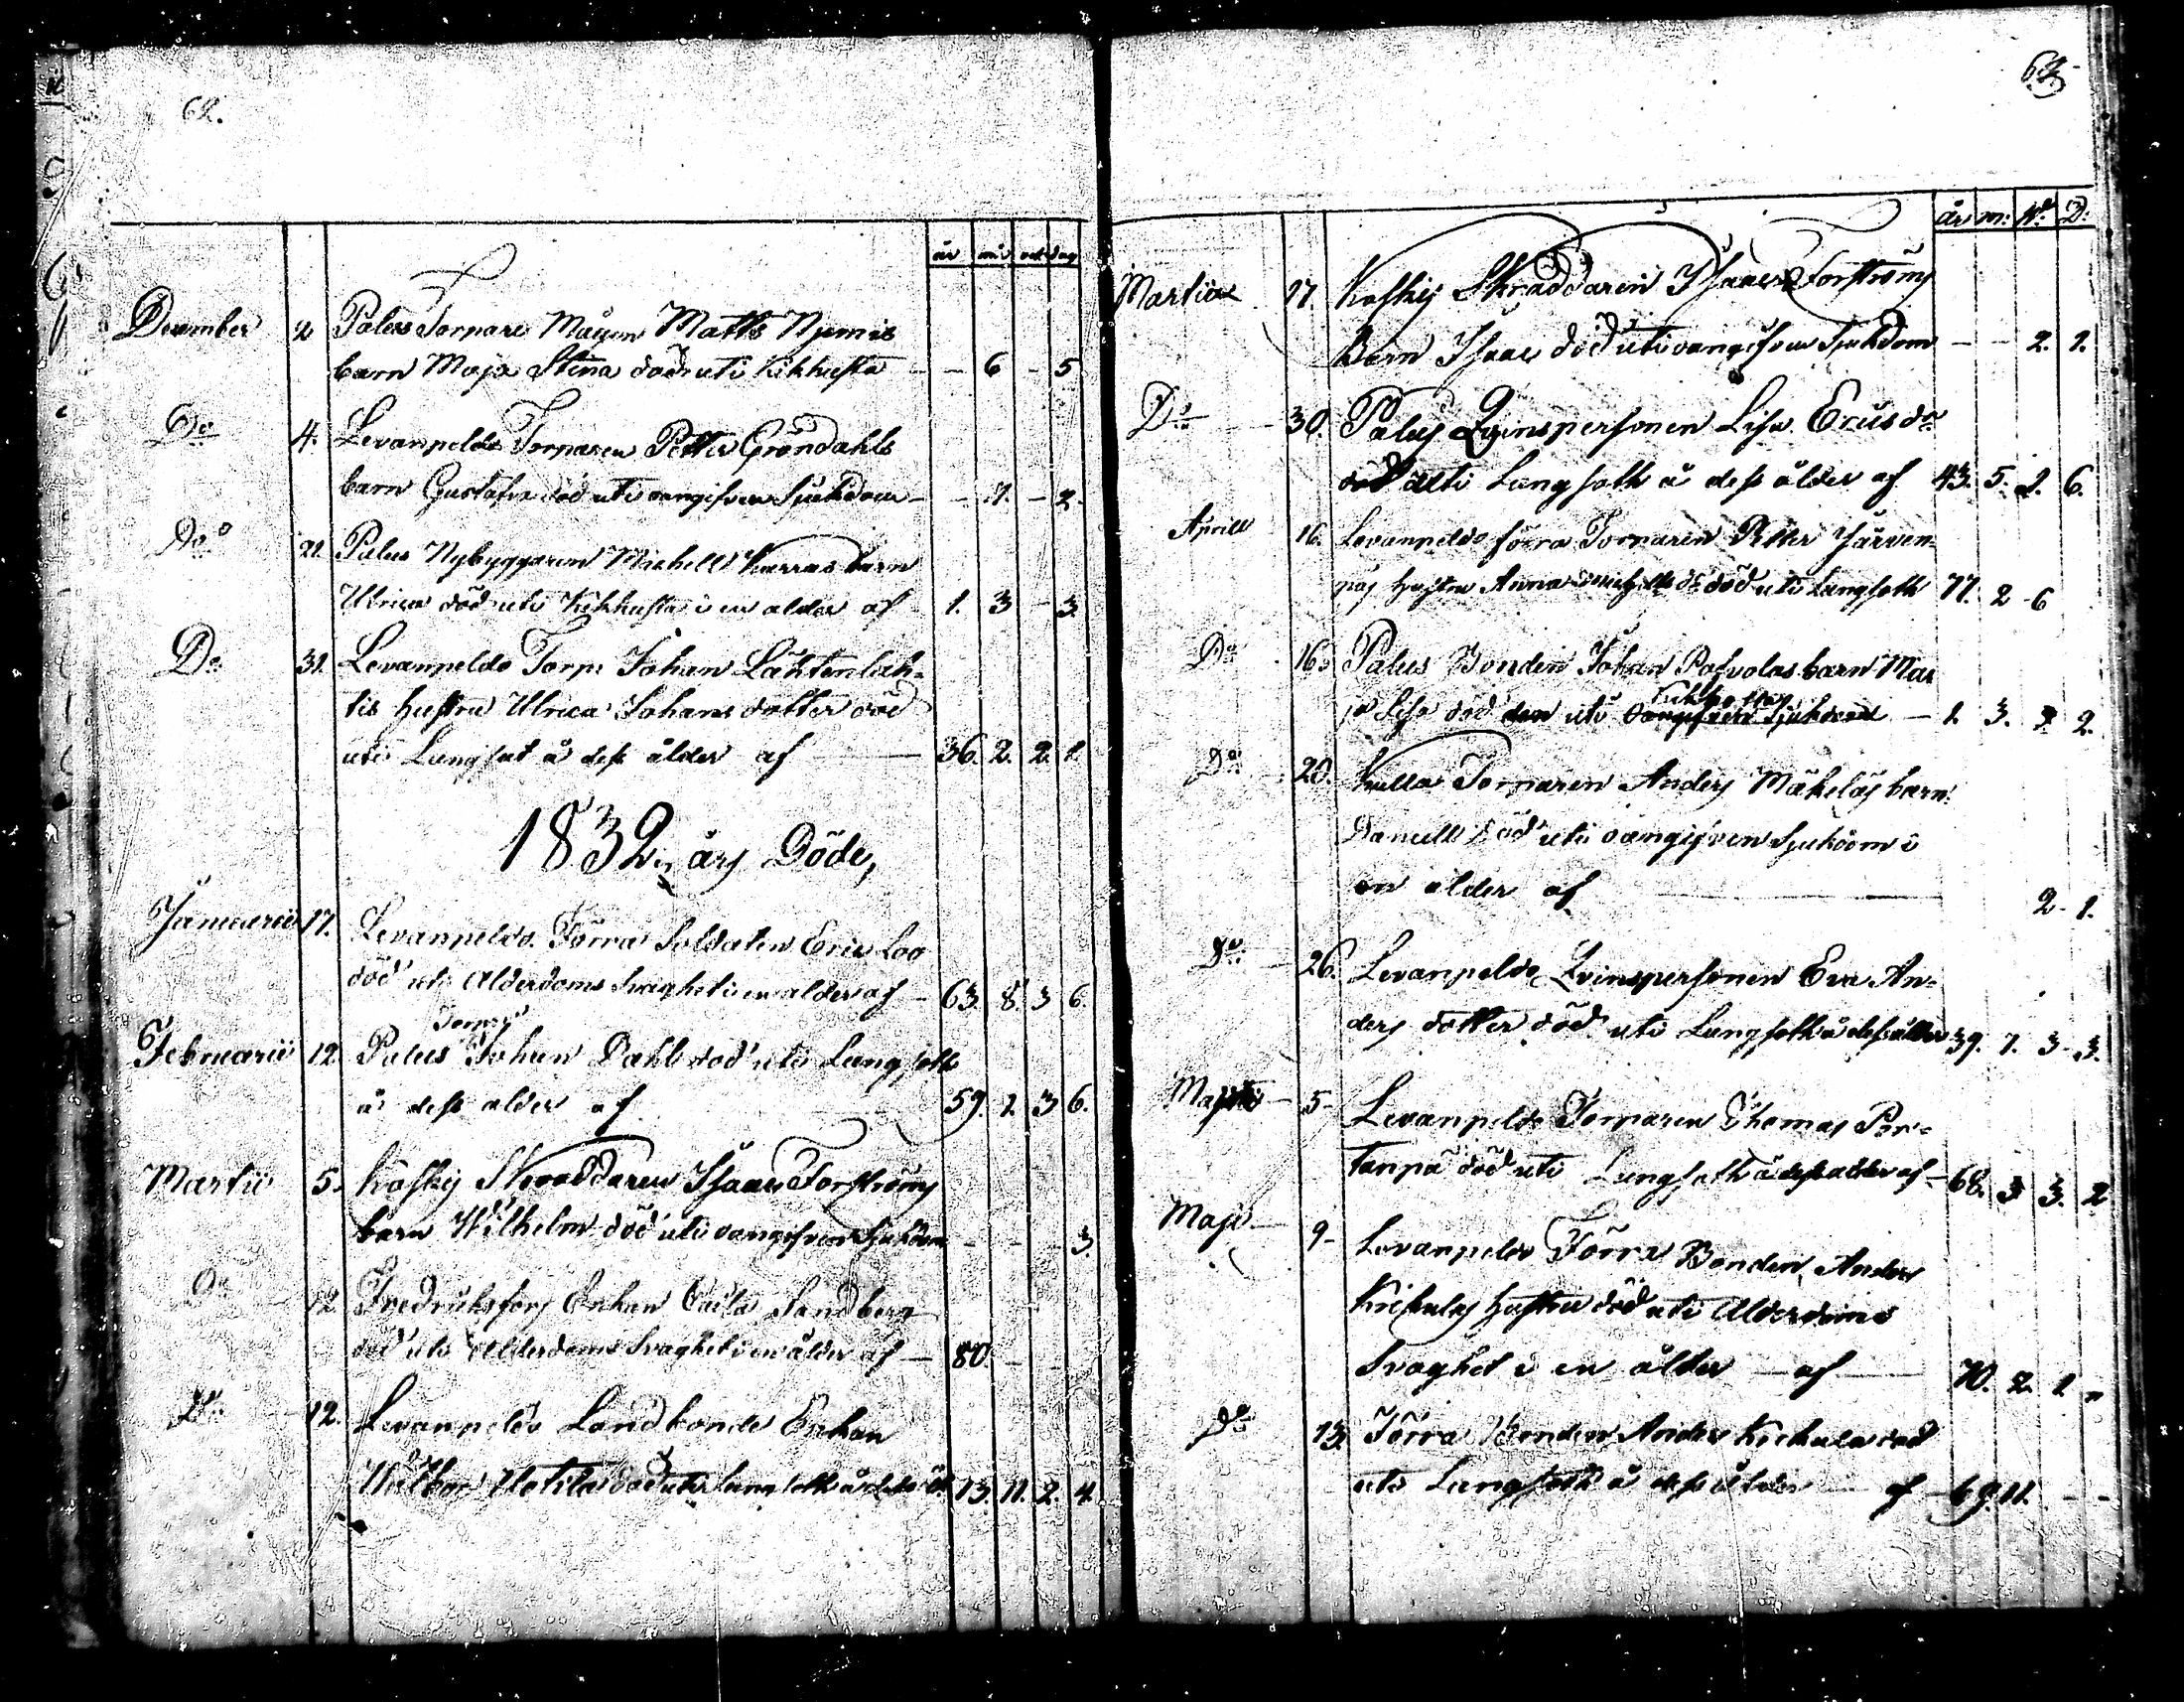 62.
år må vek dag
December 2 Palus Torpare Mågen Matts Njemis
barn Maja Stina död uti Kikhusta - - 6 - 5
Do 4. Levanpeldo Torparen Petter Gröndahls
barn Gustafva död uti oangifven Sjukdom - - 7. - 2.
Do 21 Palus Nybyggaren Michell Karras barn
Ulrica död uti Kikhusta i en ålder af 1. 3 - 3.
Do 31. Levanpeldo Torp: Johan Lähtenlah-
tis hustru Ulrica Johans dotter död
uti Lungsot å dess ålder af 36. 2. 2. 1.
1832 års Döde,
Januarii 17. Levanpeldo Förra Soldaten Eric Loo
död uti Alderdoms Svaghet i en alder af - 63. 8. 3 6.
Torp:
Februarii 12. Palus Johan Dahl död uti Lungsott
å dess alder af 59. 1. 3 6.
Martii 5. Kosky Skraddaren Isaac Forströms
barn Wilhelm död uti oangifven Sjukdom - - - 3
Do 12 Fredriksfors Enkan Cajsa Sandberg
död uti Alderdoms Svaghet i en ålder af - 80. -
Do 12. Levanpeldo Landbonde Enkan
Walbor död uti Lungsott å dess ål: 73. 11. 2. 4.
63
år m: W: D:
Martii 17. Kosky Skraddaren Isaac Forströms
Barn Isaac död uti oangifven Sjukdom - - 2. 1.
Do 30. Palus Qvinspersonen Lisa Ericsdr
död uti Lungsott å dess ålder af 43. 5. 1. 6.
Aprill 16. Levanpeldo förra Torparen Petter Järven-
päs Hustru Anna Michellsdr död uti Lungsott 77. 2 - 6
Do 16. Palus Bonden Johan barn Ma
Kikhosta
ja Lisa död uti oangifven Sjukdom - 1. 3. 3 2.
Do 20. Kulla Torparen Anders Mäkeläs barn
Daniell död uti oangifven Sjukdom i
en alder af 2 - 1.
Do 26. Levanpeldo Qvinspersonen Eva An-
ders dotter död uti Lungsott å dess ålder 39. 7. 3 - 3.
Maji 5 - Levanpeldo Torparen Thomas Por-
tanpä död uti Lungsott å dess ålder af - 68. 3 3. 2
Maji 9 - Levanpeldo Förra Bonden Anders
Kickulas hustru död uti Alderdoms
Svaghet i en ålder af 70. 2. 1. "
Do 13. Förra Bonden Anders Kickula död
uti Lungsott å dess ålder af 69. 11. - -